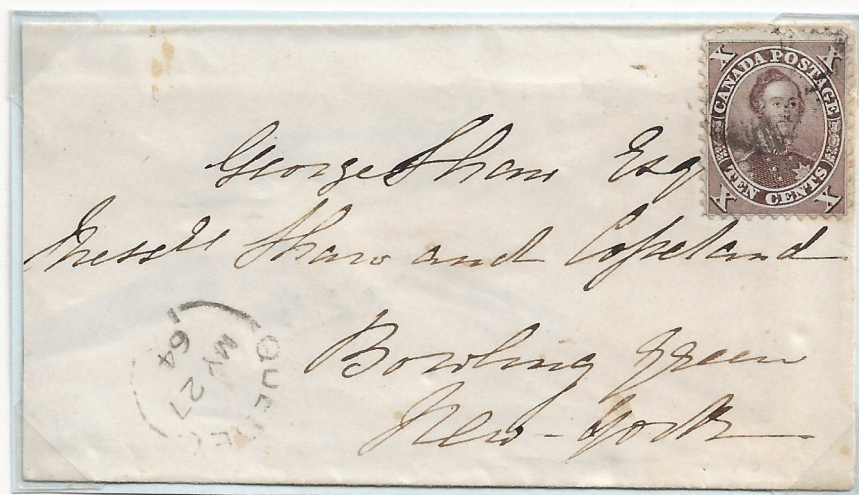 X X
CANADA POSTAGE
TEN CENTS
X X
George Shaw Esq
Mess^rs Shaw and Copeland
Bowling Green
New-York
QUEBEC
MY 27
64